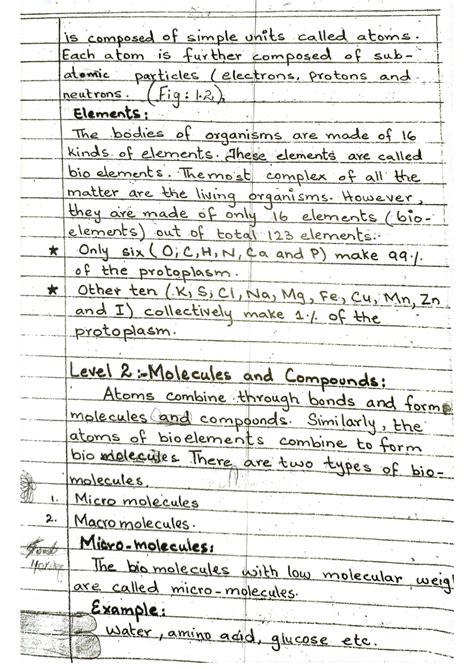 is composed of simple units called atoms.
Each atom is further composed of sub-
atomic particles (electrons, protons and
neutrons. (Fig: 1.2).
Elements:
The bodies of organisms are made of 16
kinds of elements. These elements are called
bio elements. The most complex of all the
matter are the living organisms. However,
they are made of only 16 elements (bio-
elements) out of total 123 elements.
* Only six (O, C, H, N, Ca and P) make 99%
of the protoplasm.
* Other ten (K, S, Cl, Na, Mg, Fe, Cu, Mn, Zn
and I) collectively make 1% of the
protoplasm.
Level 2:-Molecules and Compounds:
Atoms combine through bonds and form
molecules and compoonds. Similarly, the
atoms of bioelements combine to form
bio molecules There are two types of bio-
molecules.
1. Micro molecules
2. Macromolecules.
Micro-molecules:
The bio molecules with low molecular weig
are called micro-molecules.
Example:
Water, amino acid, glucose etc.